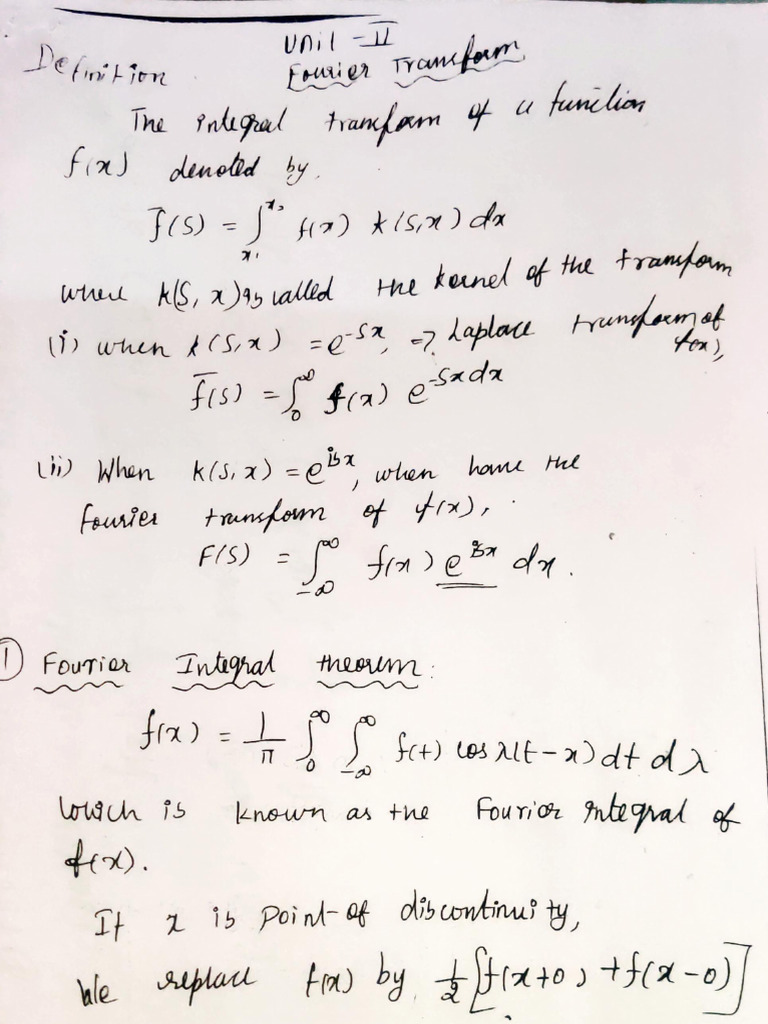 Unit - II
Definition Fourier Transform
The integral transform of a function
f(x) denoted by.
f̄(s) = ∫_{x₁}^{x₂} f(x) k(s,x) dx
where k(s,x) is called the kernel of the transform
(i) when k(s,x) = e^{-sx}, => Laplace transform of f(x),
f̄(s) = ∫_0^∞ f(x) e^{-sx} dx
(ii) When k(s,x) = e^{isx}, when have the
Fourier transform of f(x),
F(s) = ∫_{-∞}^∞ f(x) e^{isx} dx.
① Fourier Integral theorem:
f(x) = 1/π ∫_0^∞ ∫_{-∞}^∞ f(t) cos λ(t-x) dt dλ
which is known as the Fourier integral of
f(x).
If x is point of discontinuity,
We replace f(x) by 1/2 [f(x+0) + f(x-0)]